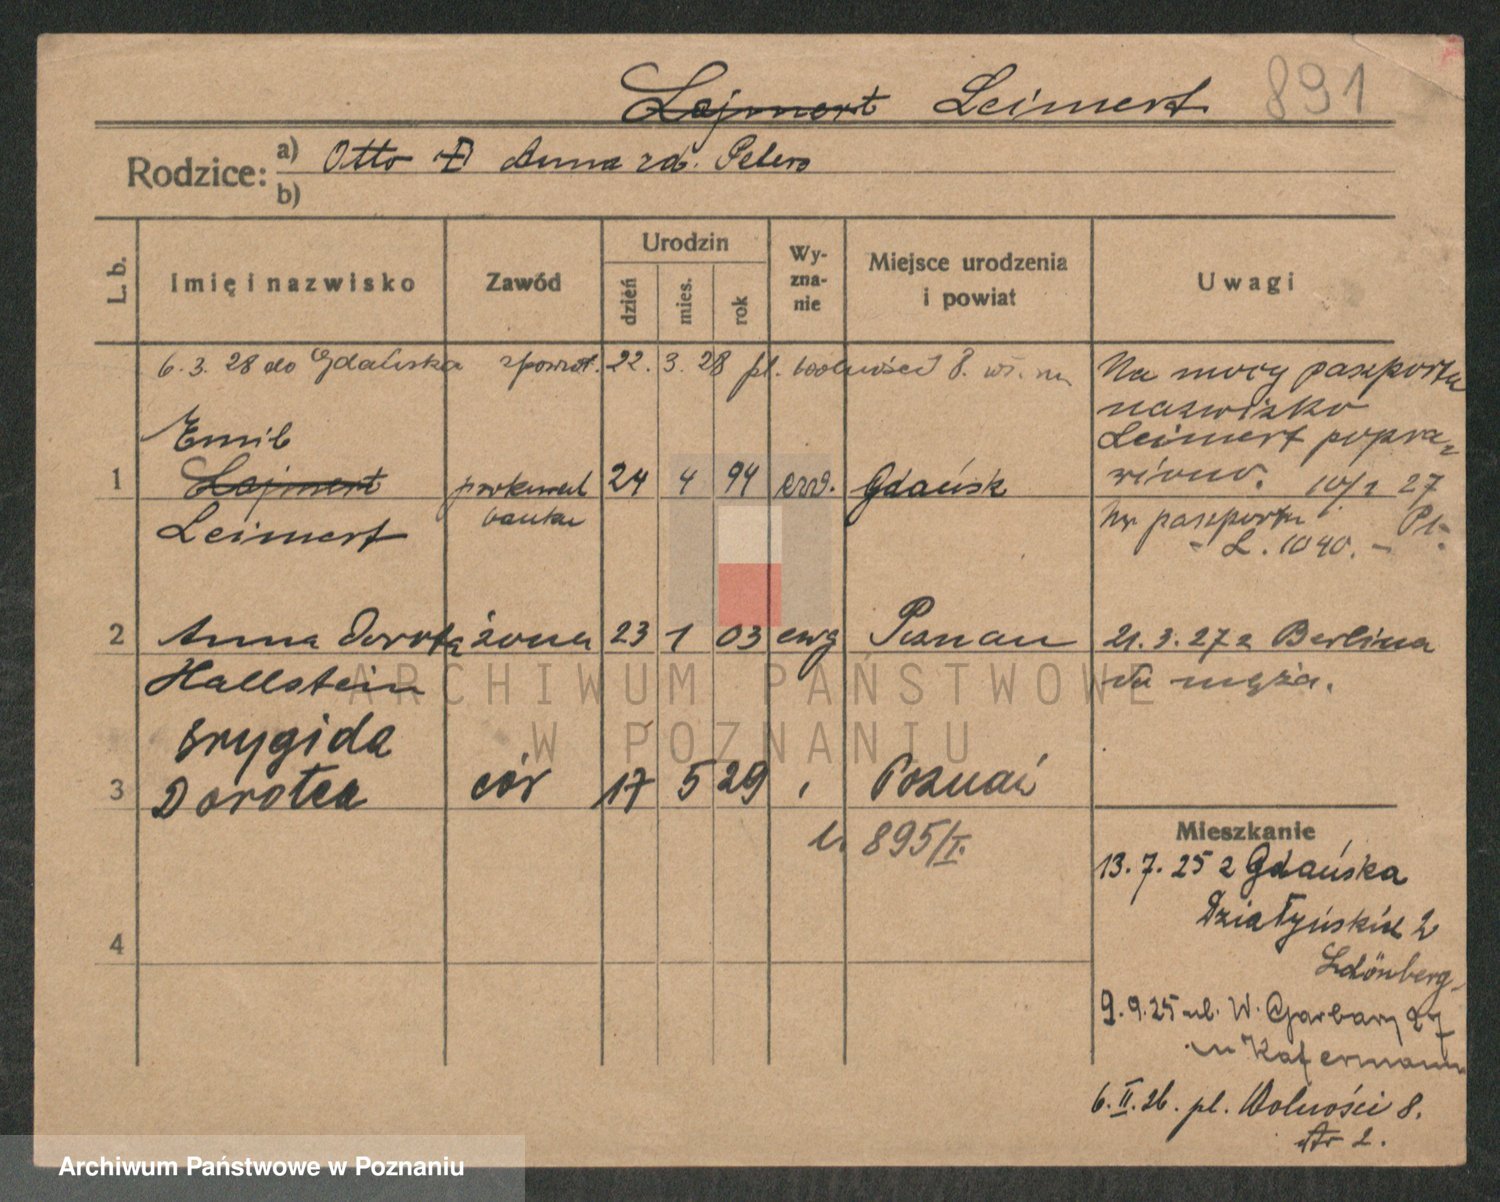 Lajmert Leimert 891
Rodzice: a) Otto Anna zd. Peters
b)
L. b. Imię i nazwisko Zawód Urodzin dzień mies. rok Wy-zna-nie Miejsce urodzenia i powiat Uwagi
6. 3. 28 do Gdańska zpowrot. 22. 3. 28 pl. Wolności 8.
Na mocy paszportu
nazwisko
Leimert popra-
wiono. 10/1 27
1 Emil
Lajmert prokurent 24 4 94 Gdańsk
Leimert banku
Nr paszportu
- L. 1040. -
2 Anna Dorota żona 23 1 03 ewg Poznań 21. 3. 27 z Berlina
Hallstein do męża.
Brygida
3 Dorotea cór 17 5 29 Poznań
895/I.
4
Mieszkanie
13. 7. 25 z Gdańska
Działyńskich 2
9. 9. 25 ul. W. Garbary 27
6. II. 26. pl. Wolności 8.
ARCHIWUM PAŃSTWOWE
W POZNANIU
Archiwum Państwowe w Poznaniu